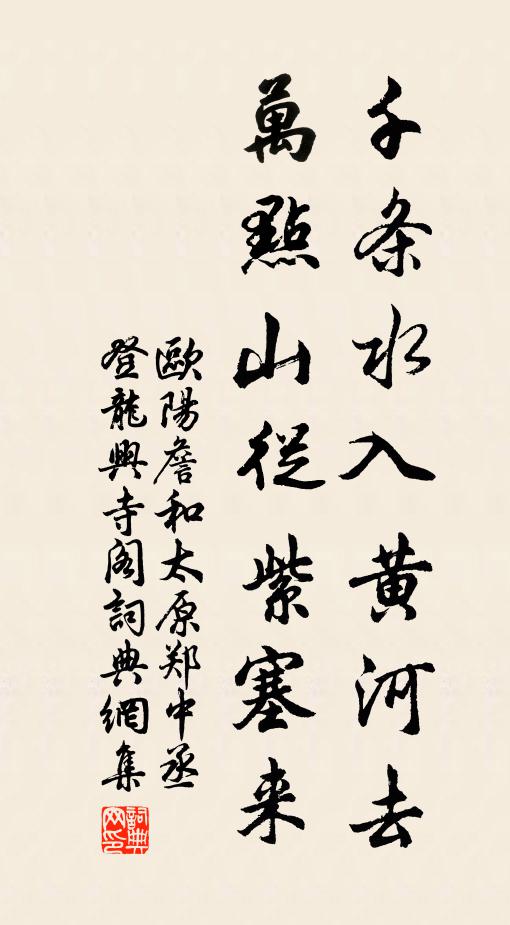 千条水入黄河去
萬點山從紫塞来
歐陽詹和太原郑中丞
登龍興寺阁詞典網集
詞典网印